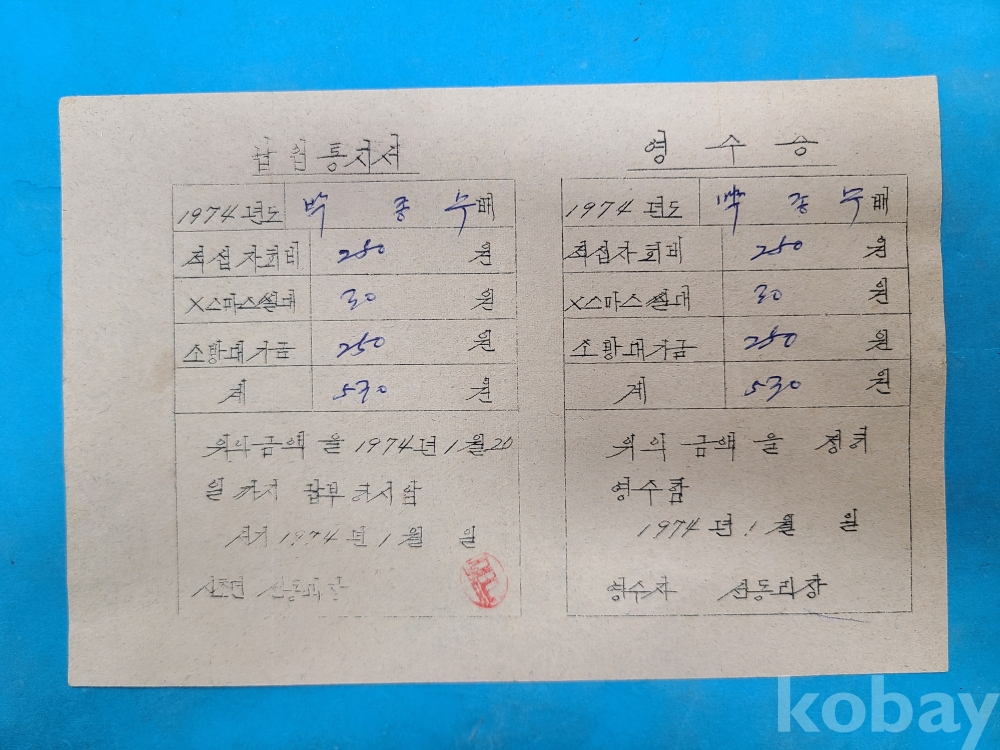 납입통지서
1974년도 박종수 배
적십자회비 250 원
X스마스씰대 30 원
소방대기금 250 원
계 530 원
위의금액을 1974년 1월 20
일까지 납부하시압
서기 1974년 1월 일
선동리장
영수증
1974년도 박종수 배
적십자회비 250 원
X스마스씰대 30 원
소방대기금 250 원
계 530 원
위의 금액을 정히
영수함
1974년 1월 일
영수자 선동리장
kobay